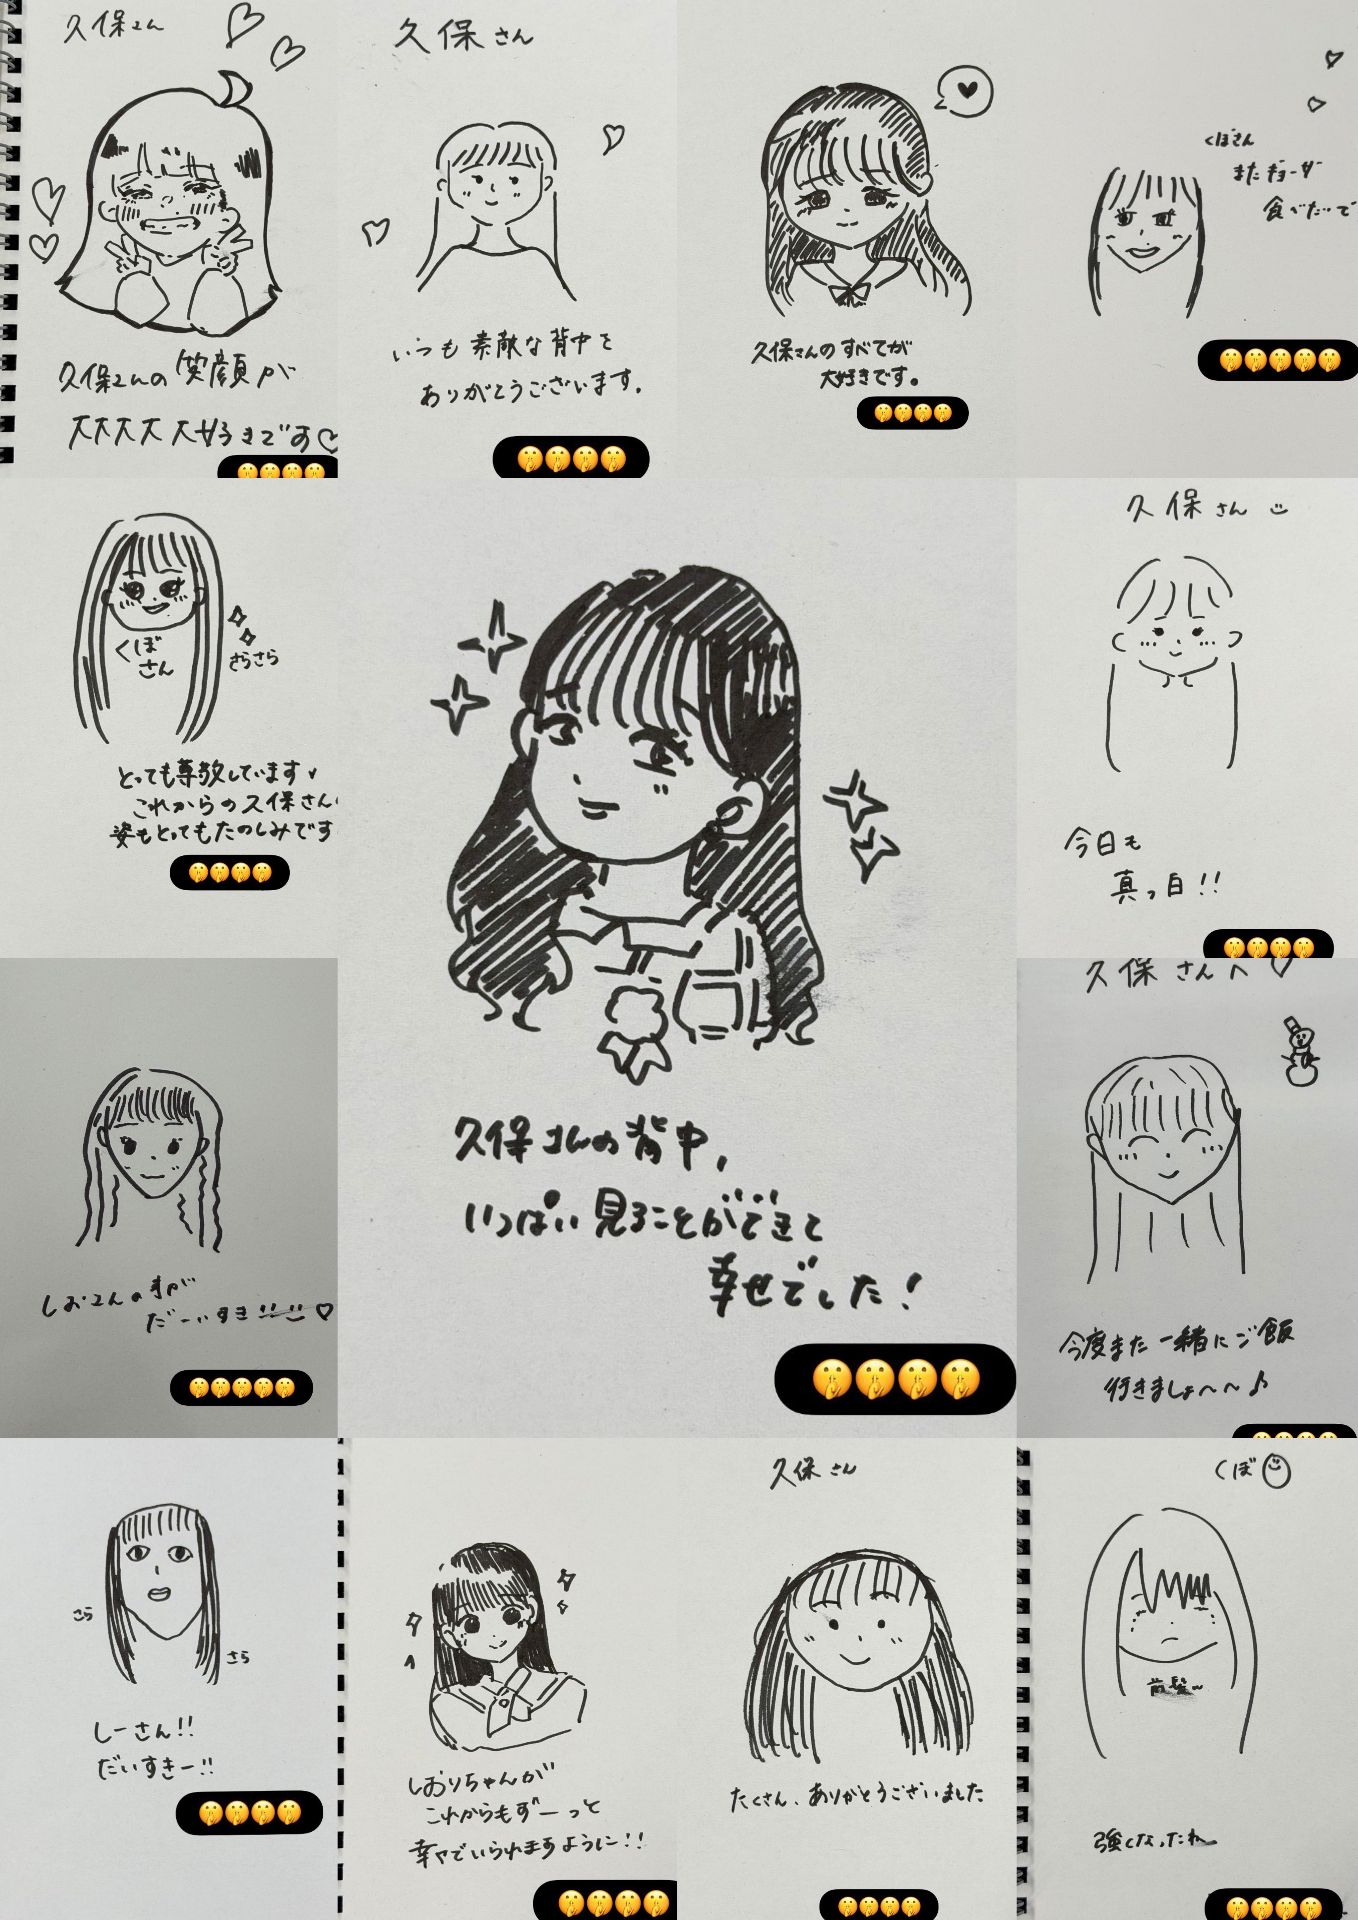 久保さん
久保さんの笑顔が
大大大大大好きです♡
久保さん
いつも素敵な背中を
ありがとうございます。
久保さんのすべてが
大好きです。
くぼさん
またギョーザ
食べたいで
くぼ
さん
さらさら
とっても尊敬しています
これからの久保さん
姿もとってもたのしみです
久保さんの背中,
いっぱい見ることができて
幸せでした!
久保さん
今日も
真っ白!!
しおさんの事が
だーいすき!!!!♡
久保さんへ♡
今度また一緒にご飯
行きましょ〜〜♪
さら
さら
しーさん!!
だいすきー!!
しおりちゃんが
これからもずーっと
幸せでいられますように!!
久保さん
たくさん、ありがとうございました
くぼ
前髪〜
強くなったね